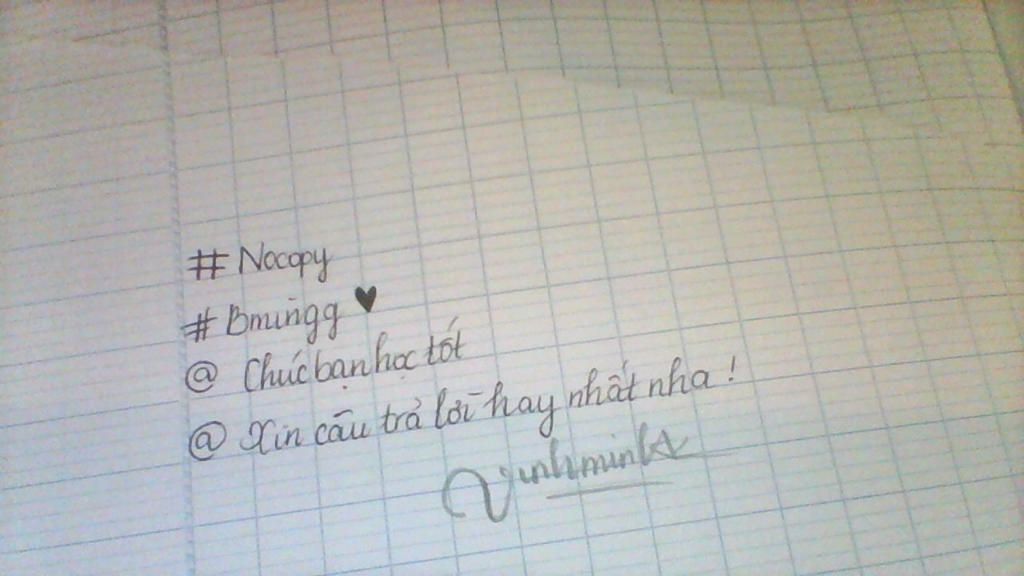 # Nocopy
# Bmingg ♥
@ Chúc bạn học tốt
@ Xin câu trả lời hay nhất nha !